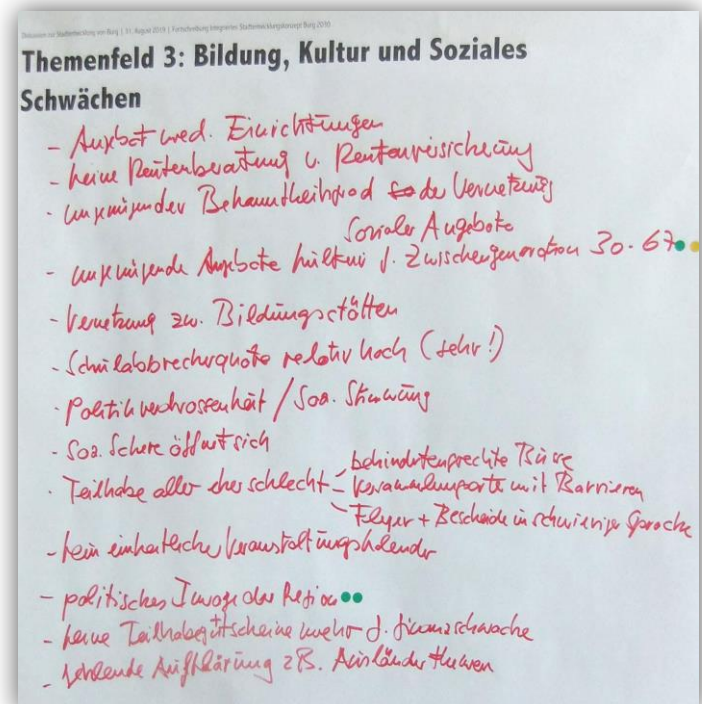 Diskussion zur Stadtentwicklung von Burg | 31. August 2019 | Fortschreibung Integriertes Stadtentwicklungskonzept Burg 2030
Themenfeld 3: Bildung, Kultur und Soziales
Schwächen
- Angebot med. Einrichtungen
- keine Rentenberatung u. Rentenversicherung
- ungenügender Bekanntheitsgrad der Vernetzung
sozialer Angebote
- ungenügende Angebote kulturell f. Zwischengeneration 30-67
- Vernetzung zw. Bildungsstätten
- Schulabbrecherquote relativ hoch (sehr!)
- Politikverdrossenheit / Soz. Stimmung
- Soz. Schere öffnet sich
- Teilhabe aller eher schlecht - behindertengerechte Büros
- Versammlungsorte mit Barrieren
- Flyer + Bescheide in schwieriger Sprache
- kein einheitlicher Veranstaltungskalender
- politisches Image der Region
- keine Teilhabegutscheine mehr f. finanzschwache
- fehlende Aufklärung zB. Ausländerthemen